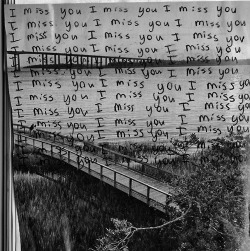 I miss you I miss you I miss you
I miss you I miss you I miss you
I miss you I miss you I miss you
I miss you I miss you I miss you
I miss you I miss you I miss you
I miss you I miss you I miss you
I miss you I miss you I miss you
I miss you I miss you I miss you
I miss you I miss you I miss you
I miss you I miss you I miss you
I miss you I miss you I miss
you I miss you I